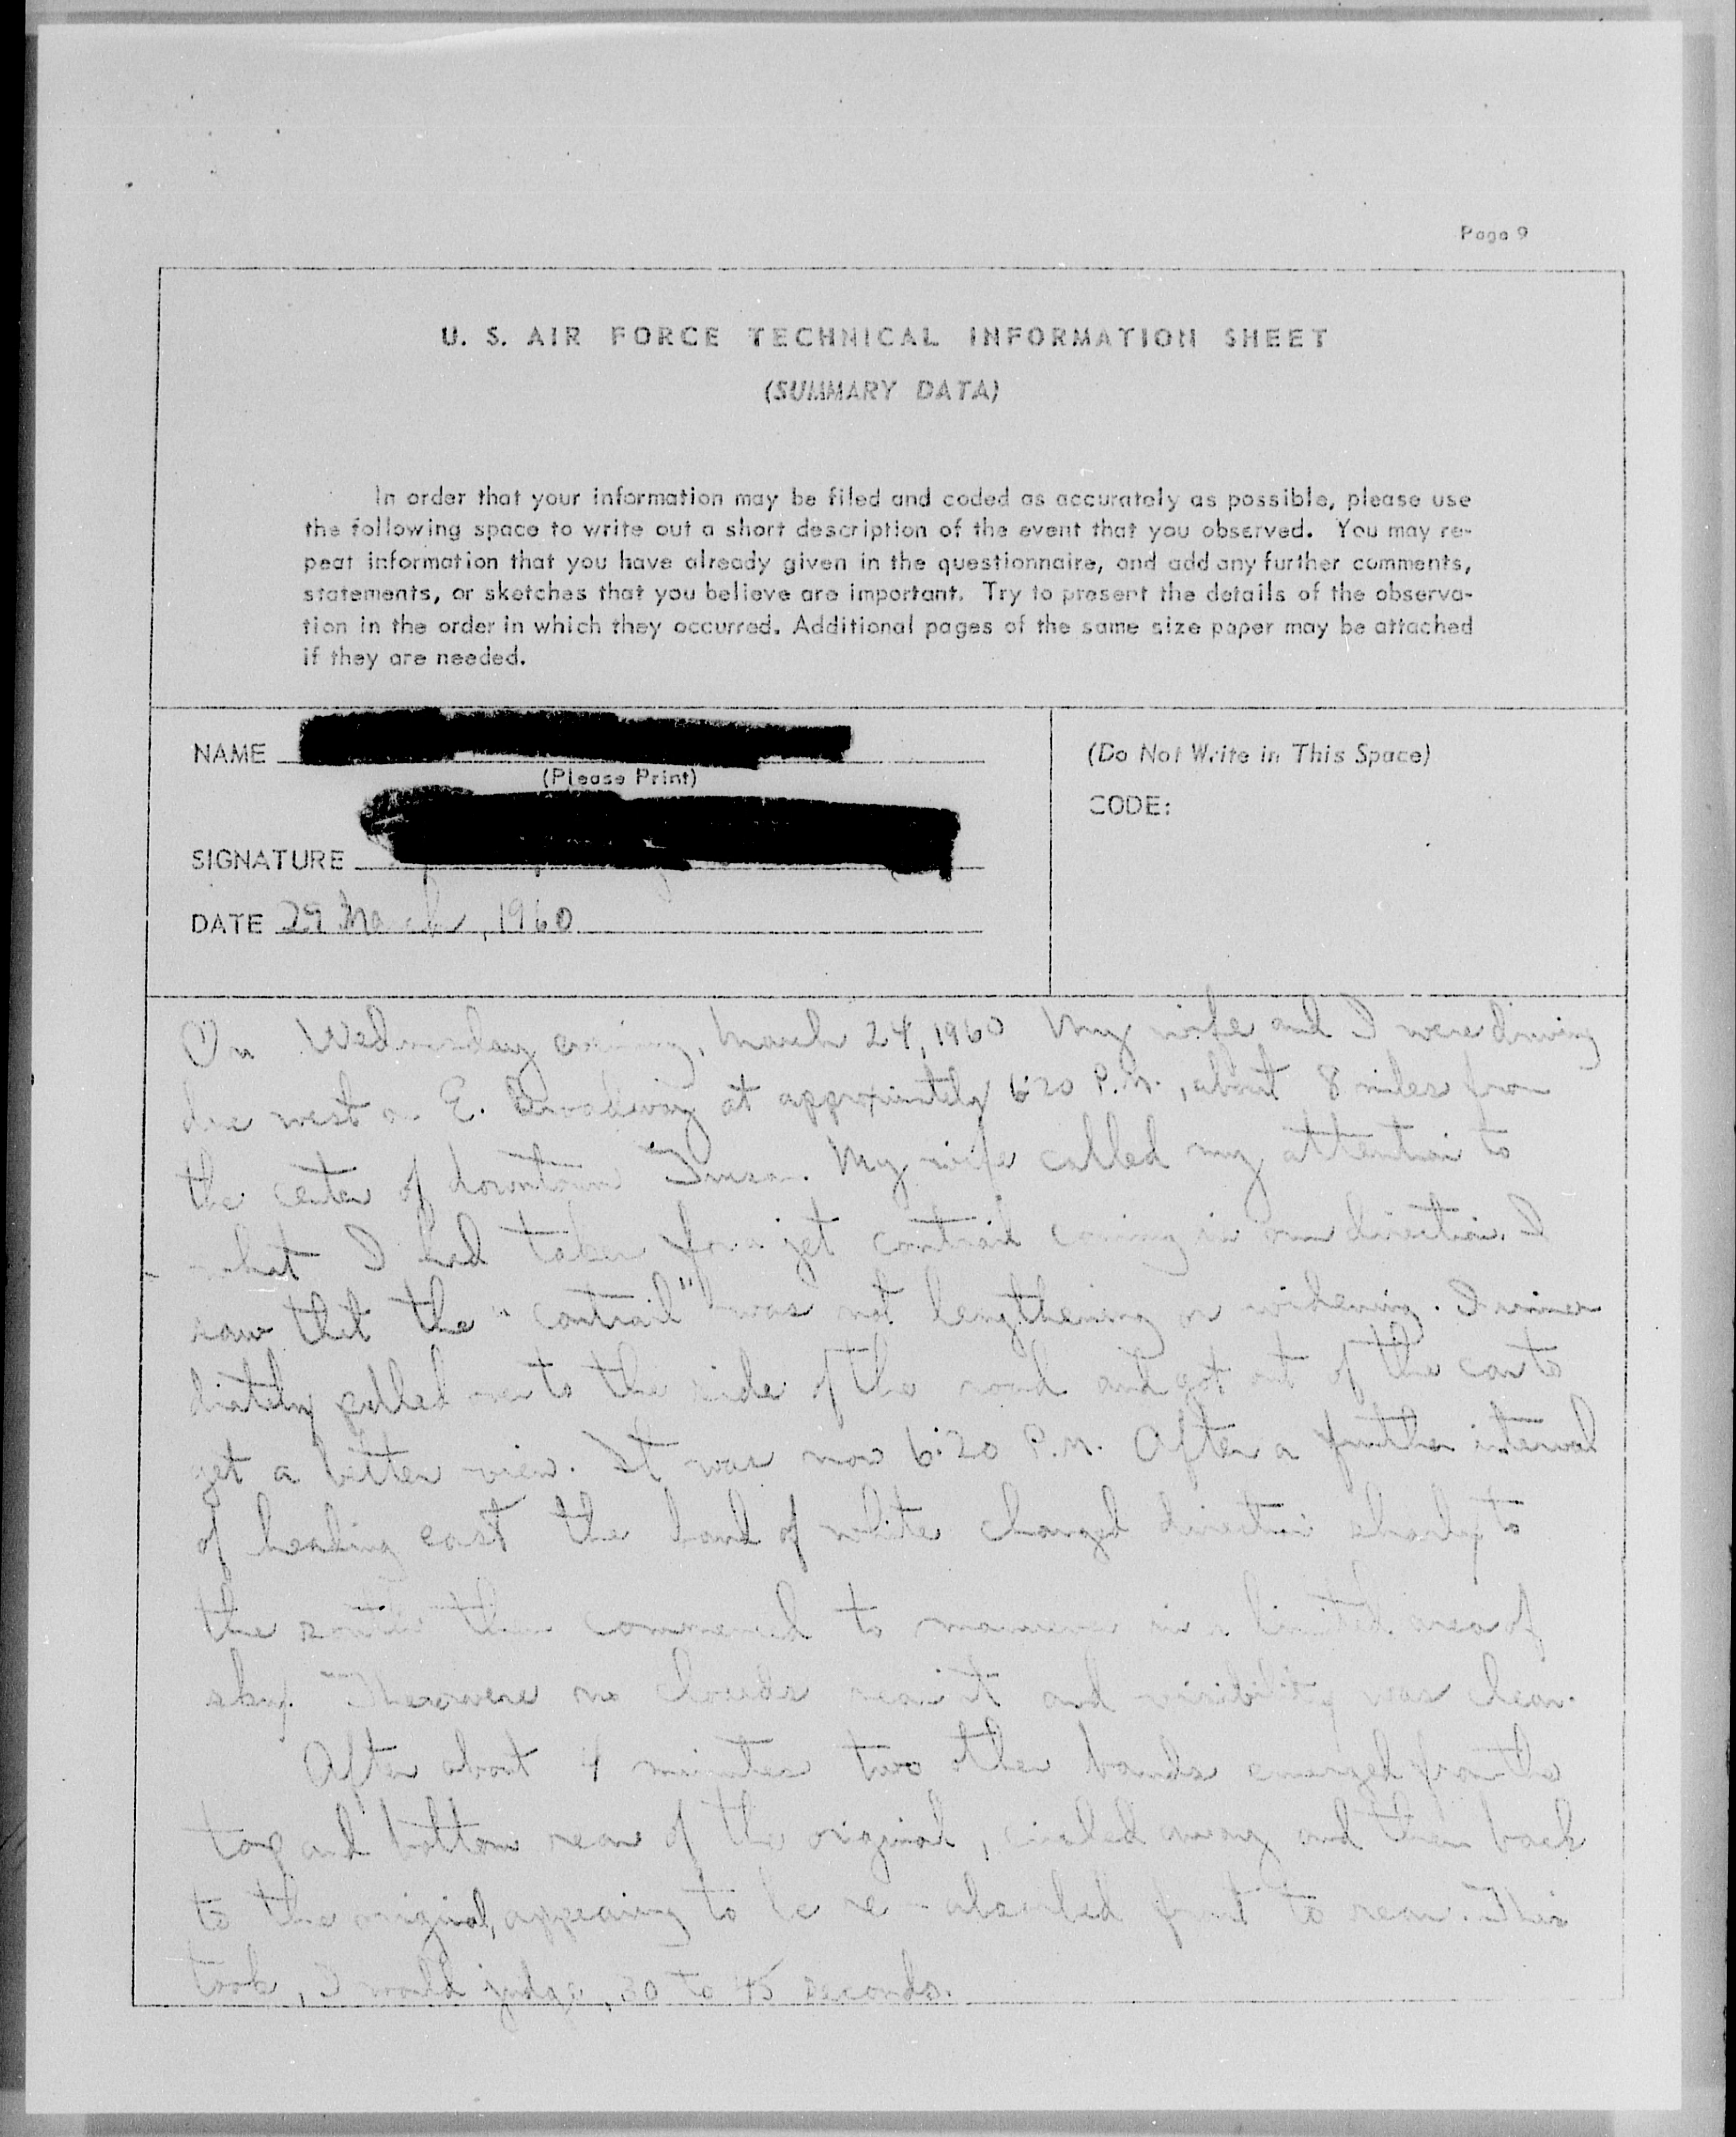 Page 9
U. S. AIR FORCE TECHNICAL INFORMATION SHEET
(SUMMARY DATA)
In order that your information may be filed and coded as accurately as possible, please use
the following space to write out a short description of the event that you observed. You may re-
peat information that you have already given in the questionnaire, and add any further comments,
statements, or sketches that you believe are important. Try to present the details of the observa-
tion in the order in which they occurred. Additional pages of the same size paper may be attached
if they are needed.
NAME
(Please Print)
SIGNATURE
DATE 29 March, 1960
(Do Not Write in This Space)
CODE:
On Wednesday evening, March 24, 1960 My wife and I were driving
due west on E. Broadway at approximately 6:20 P.M., about 8 miles from
the center of downtown My wife called my attention to
what I had taken for a jet contrail coming in our direction. I
saw that the "contrail" was not lengthening or widening. I imme
diately pulled over to the side of the road and got out of the car to
get a better view. It was now 6:20 P.M. After a further interval
of heading east the band of white changed direction sharply to
the south then commenced to maneuver in a limited area of
sky. There were no clouds near it and visibility was clear.
After about 4 minutes two other bands emerged from the
top and bottom rear of the original, circled away and then back
to the original, appearing to be re-absorbed front to rear. This
took, I would judge, 30 to 45 seconds.